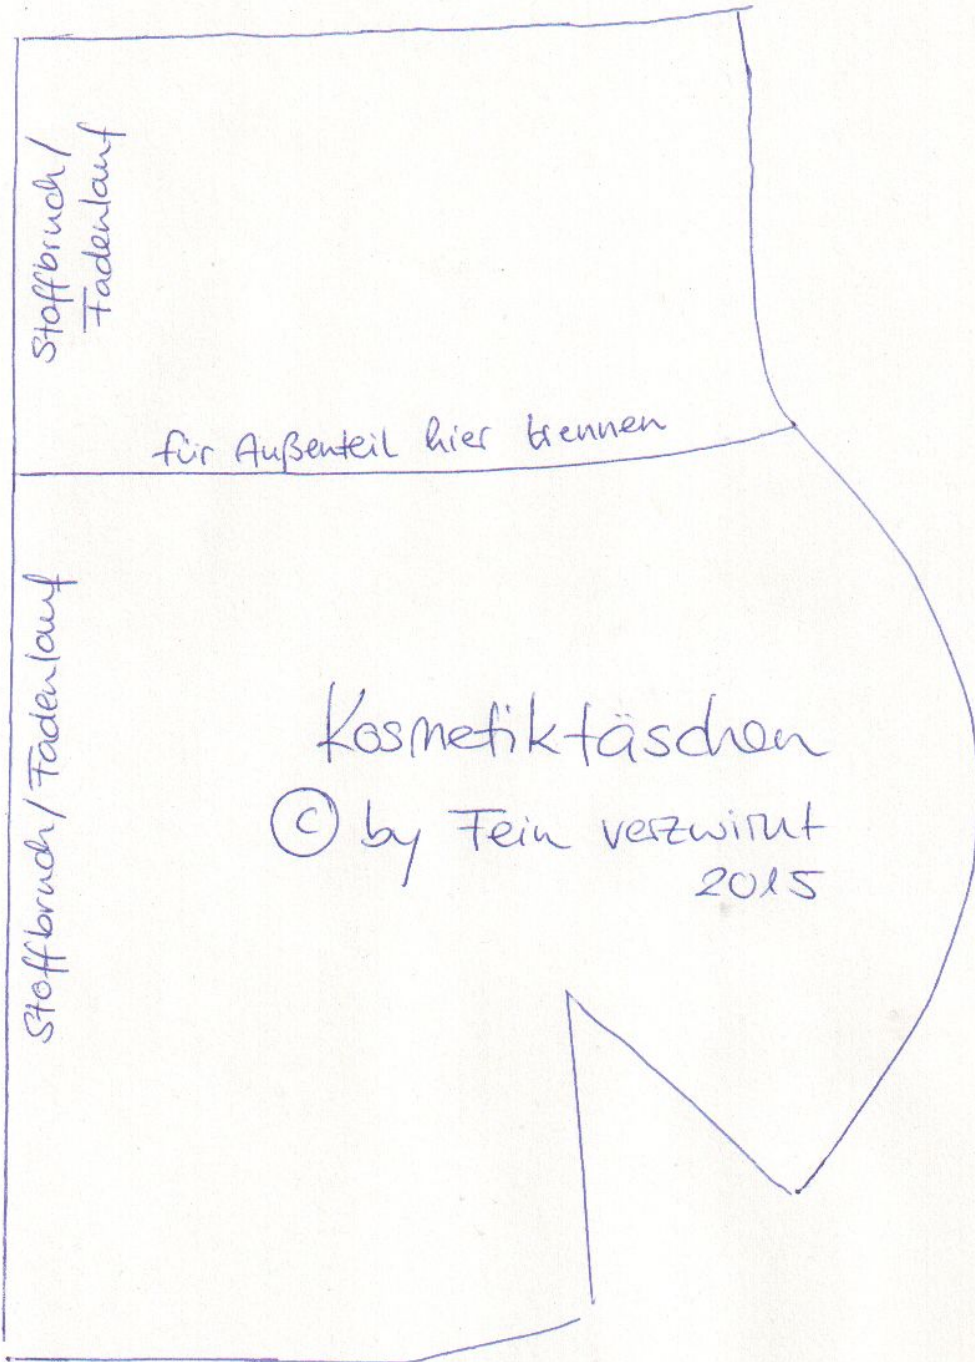 Stoffbruch/
Fadenlauf
für Außenteil hier trennen
Stoffbruch/Fadenlauf
Kosmetiktäschen
© by Fein verzwirnt
2015